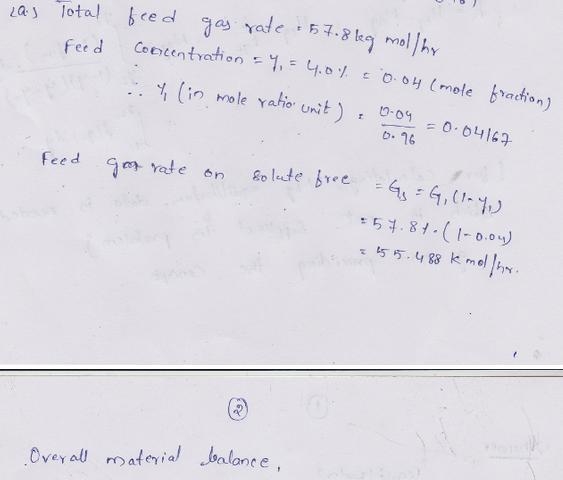 2a.) Total feed gas rate = 57.8 kg mol/hr
Feed Concentration = y₁ = 4.0% = 0.04 (mole fraction)
∴ Y₁ (in mole ratio unit) = 0.04/0.96 = 0.04167
Feed gas rate on solute free = Gs = G₁(1-y₁)
= 57.8 × (1-0.04)
= 55.488 K mol/hr.
②
Overall material balance,